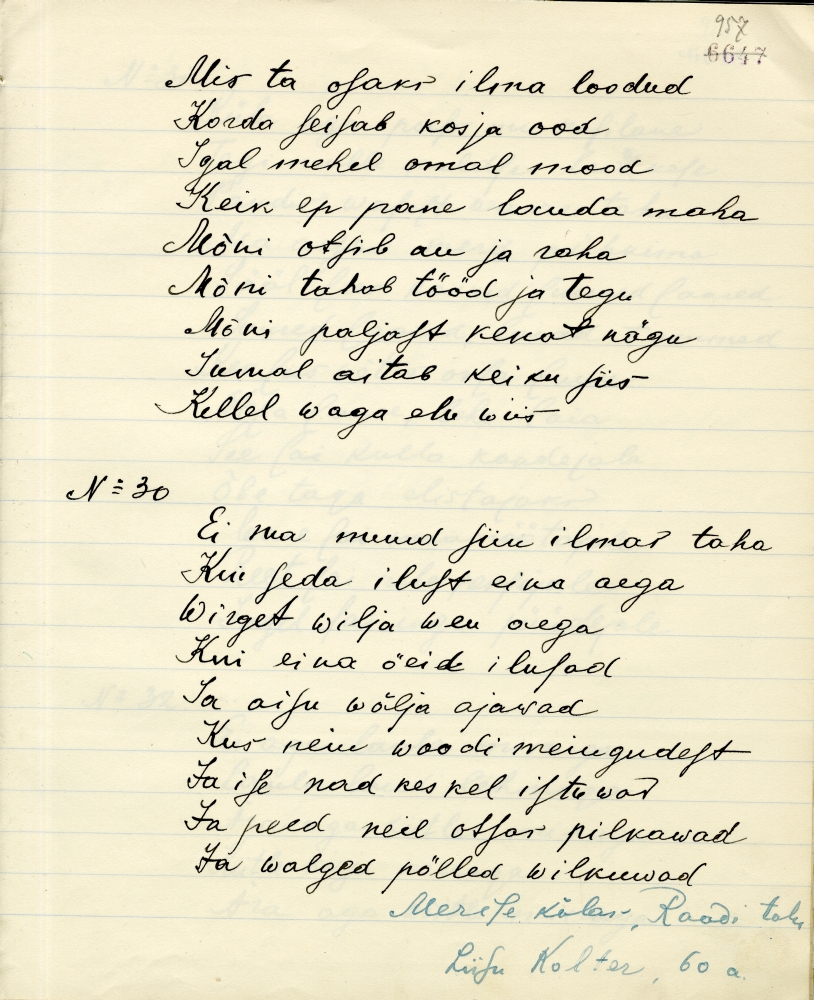 957
6647
Mis ta osaks ilma loodud
Korda seisab kosja ood
Igal mehel omal mood
Keik ep pane lauda maha
Mõni otsib au ja raha
Mõni tahab tööd ja tegu
Mõni paljast kenat nägu
Jumal aitab keiku siis
Kellel waga elu wiis
N= 30
Ei ma muud siin ilmas taha
Kui seda ilust eina aega
Wirget wilja weu aega
Kui eina öeid ilusad
Ja aisu wälja ajawad
Kus neiu woodi meiugudest
Ja ise nad keskel istuwad
Ja peed neil otsas pilkawad
Ja walged põlled wilkuwad
Merise külas, Raadi talu
Liisu Kolter, 60 a.